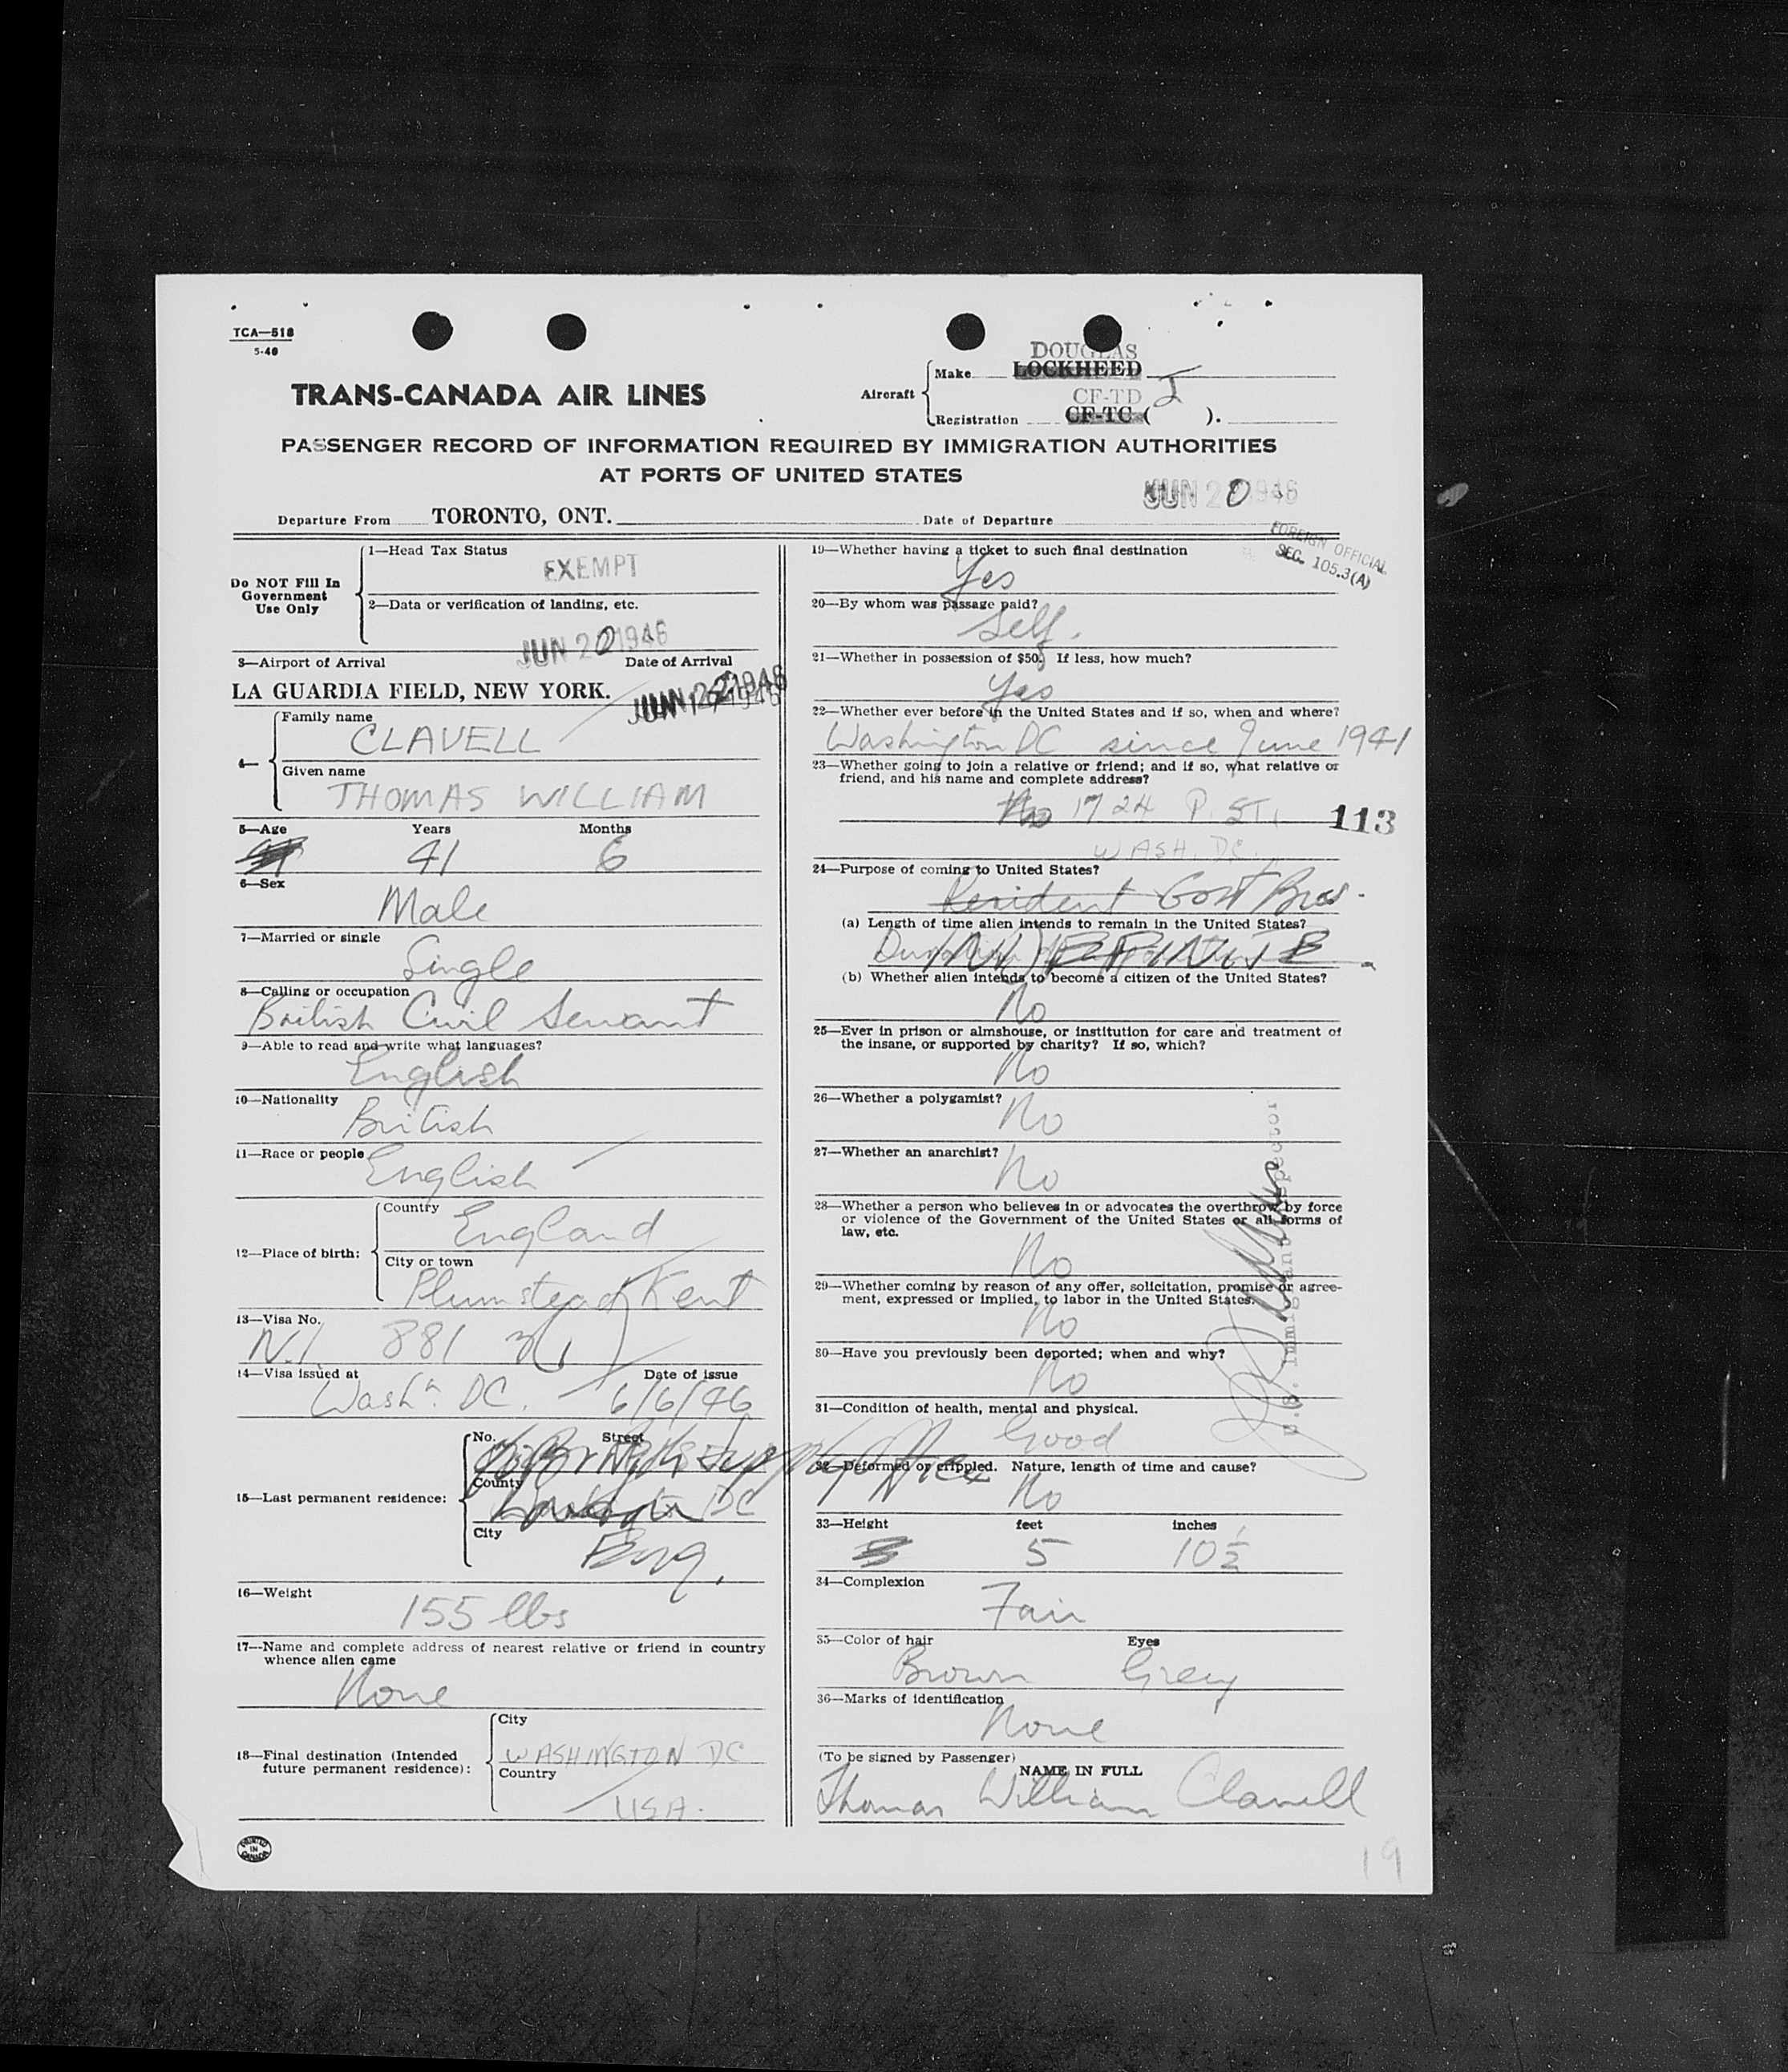 TCA—518
5-46
TRANS-CANADA AIR LINES
Aircraft
DOUGLAS
Make LOCKHEED
CF-TD J
Registration CF-TC ( ).
PASSENGER RECORD OF INFORMATION REQUIRED BY IMMIGRATION AUTHORITIES
AT PORTS OF UNITED STATES
Departure From TORONTO, ONT. Date of Departure JUN 20 1946
Do NOT Fill In Government Use Only
1—Head Tax Status
EXEMPT
2—Data or verification of landing, etc.
JUN 20 1946
3—Airport of Arrival Date of Arrival
LA GUARDIA FIELD, NEW YORK.
4—
Family name
CLAVELL
Given name
THOMAS WILLIAM
5—Age Years Months
41 6
6—Sex
Male
7—Married or single
Single
8—Calling or occupation
British Civil Servant
9—Able to read and write what languages?
English
10—Nationality
British
11—Race or people
English
12—Place of birth:
Country
England
City or town
Plumstead Kent
13—Visa No.
N.I 881
14—Visa issued at Date of issue
Washn. DC. 6/6/46
15—Last permanent residence:
No. Street
County
Washington DC
City
Eng.
16—Weight
155 lbs
17—Name and complete address of nearest relative or friend in country
whence alien came
None
18—Final destination (Intended
future permanent residence):
City
WASHINGTON DC
Country
USA.
PRINTED
IN
CANADA
FOREIGN OFFICIAL
SEC. 105.3(A)
19—Whether having a ticket to such final destination
Yes
20—By whom was passage paid?
Self.
21—Whether in possession of $50. If less, how much?
Yes
22—Whether ever before in the United States and if so, when and where?
Washington DC since June 1941
23—Whether going to join a relative or friend; and if so, what relative or
friend, and his name and complete address?
No 1724 P. ST. 113
WASH. DC.
24—Purpose of coming to United States?
Resident Govt Bus.
(a) Length of time alien intends to remain in the United States?
INDEFINITE
(b) Whether alien intends to become a citizen of the United States?
No
25—Ever in prison or almshouse, or institution for care and treatment of
the insane, or supported by charity? If so, which?
No
26—Whether a polygamist?
No
27—Whether an anarchist?
No
28—Whether a person who believes in or advocates the overthrow by force
or violence of the Government of the United States or all forms of
law, etc.
No
29—Whether coming by reason of any offer, solicitation, promise or agree-
ment, expressed or implied, to labor in the United States.
No
30—Have you previously been deported; when and why?
No
U.S. Immigrant Inspector
31—Condition of health, mental and physical.
Good
32—Deformed or crippled. Nature, length of time and cause?
No
33—Height feet inches
5 10½
34—Complexion
Fair
35—Color of hair Eyes
Brown Grey
36—Marks of identification
None
(To be signed by Passenger)
NAME IN FULL
Thomas William Clavell
19